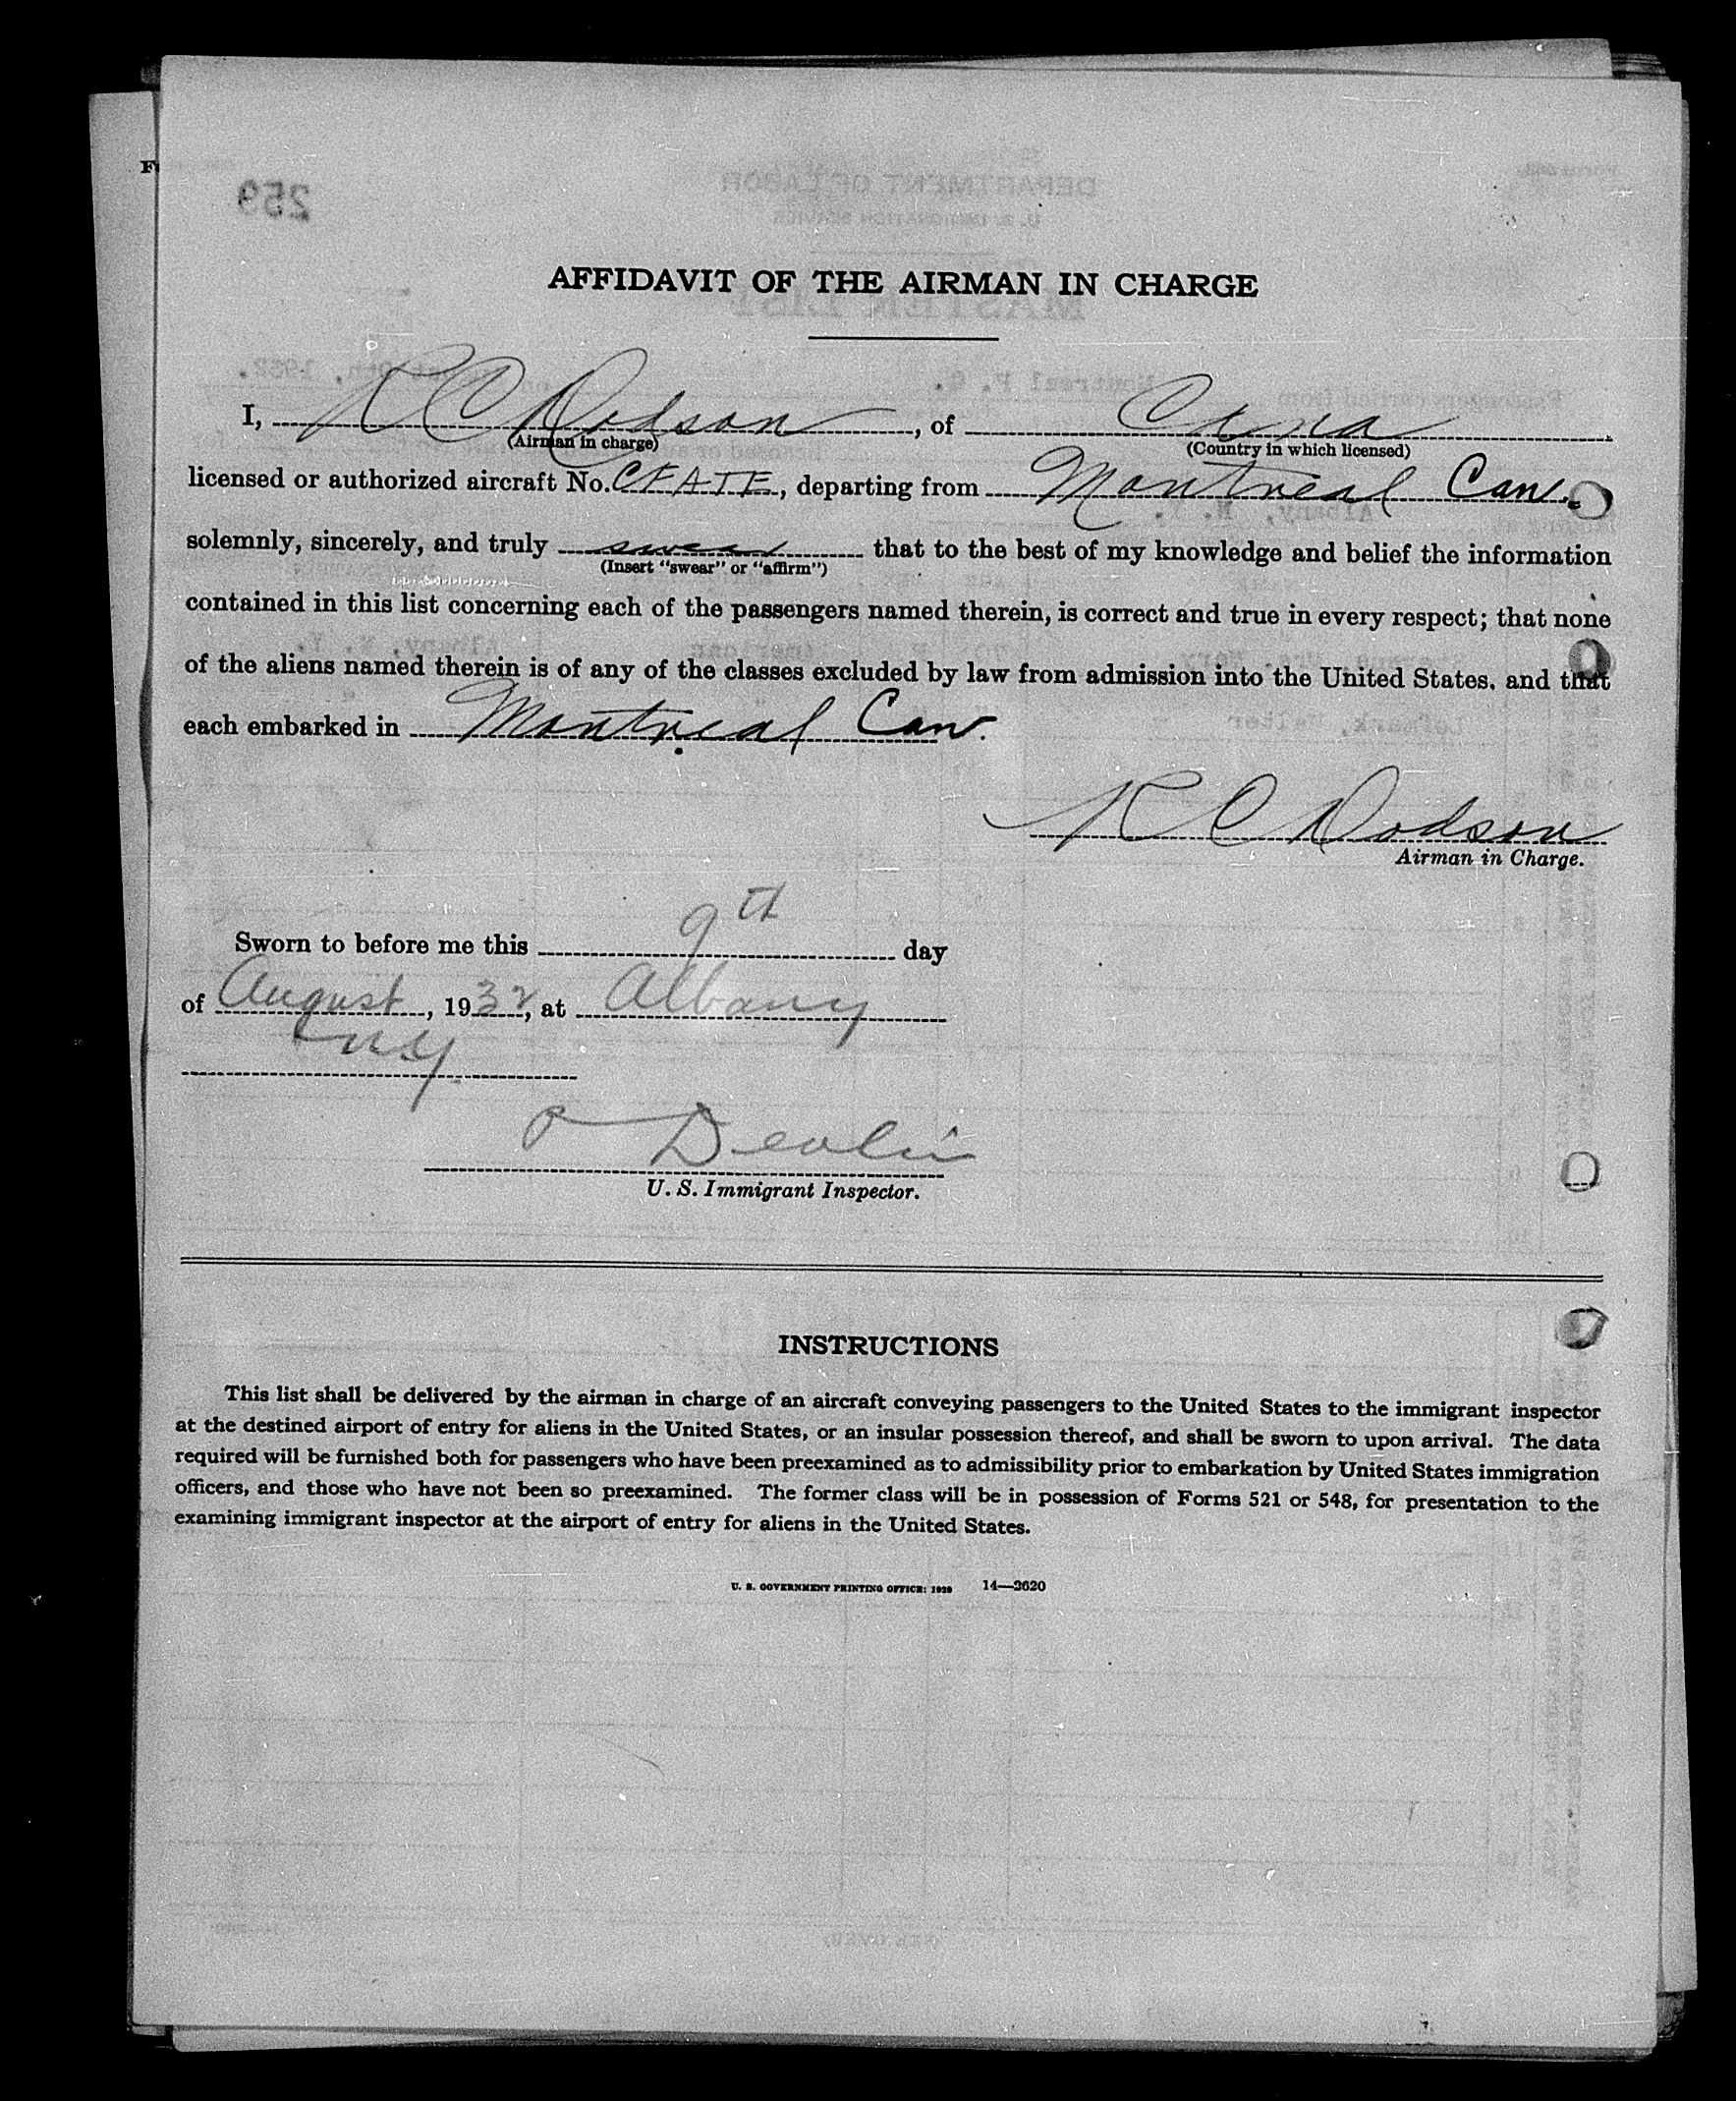 AFFIDAVIT OF THE AIRMAN IN CHARGE
I, R C Dodson, of Cana
(Airman in charge) (Country in which licensed)
licensed or authorized aircraft No. CFATE, departing from Montreal Can.
solemnly, sincerely, and truly swear that to the best of my knowledge and belief the information
(Insert "swear" or "affirm")
contained in this list concerning each of the passengers named therein, is correct and true in every respect; that none
of the aliens named therein is of any of the classes excluded by law from admission into the United States, and that
each embarked in Montreal Can.
R C Dodson
Airman in Charge.
Sworn to before me this 9th day
of August, 1932, at Albany
NY.
P Devlin
U. S. Immigrant Inspector.
INSTRUCTIONS
This list shall be delivered by the airman in charge of an aircraft conveying passengers to the United States to the immigrant inspector
at the destined airport of entry for aliens in the United States, or an insular possession thereof, and shall be sworn to upon arrival. The data
required will be furnished both for passengers who have been preexamined as to admissibility prior to embarkation by United States immigration
officers, and those who have not been so preexamined. The former class will be in possession of Forms 521 or 548, for presentation to the
examining immigrant inspector at the airport of entry for aliens in the United States.
U. S. GOVERNMENT PRINTING OFFICE: 1929 14—3620